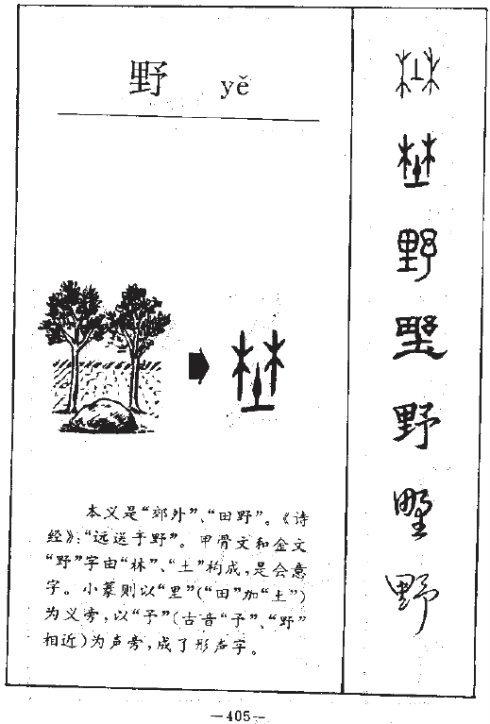 野 yě
本义是“郊外”、“田野”。《诗
经》:“远送于野”。甲骨文和金文
“野”字由“林”、“土”构成,是会意
字。小篆则以“里”(“田”加“土”)
为义旁,以“予”(古音“予”、“野”
相近)为声旁,成了形声字。
野
野
—405—